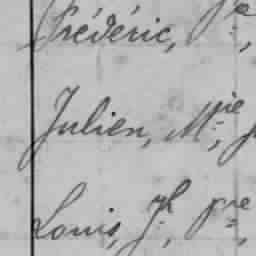 Frédéric, Pre,
Julien, Mie,
Louis, Jh, pre,